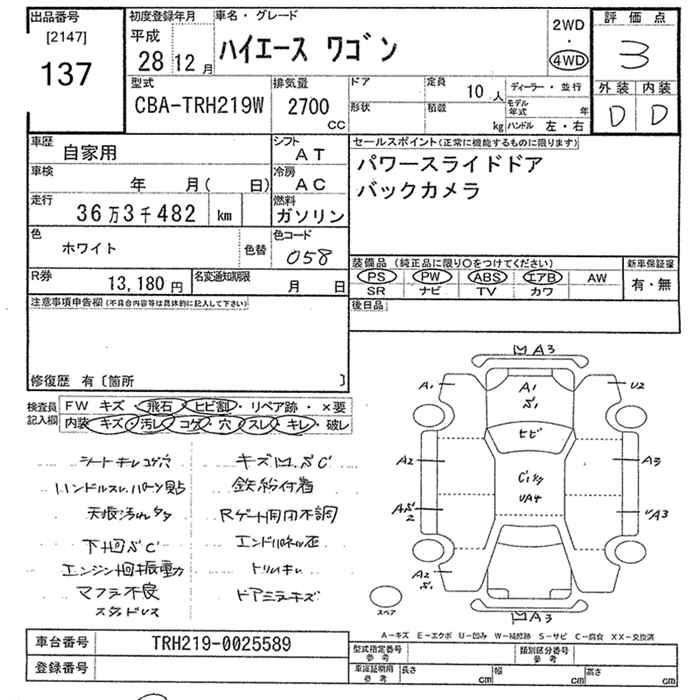 出品番号
[2147]
137
初度登録年月
平成
28 12月
車名・グレード
ハイエース ワゴン
2WD
・
4WD
評価点
3
外装 内装
D D
型式
CBA-TRH219W
排気量
2700
CC
ドア
形状
定員 10 人
積載 kg
ディーラー・並行
モデル年式 年
ハンドル 左・右
車歴
自家用
シフト
AT
車検
年 月( 日)
冷房
AC
走行
36万3千482 km
燃料
ガソリン
色
ホワイト
色替
色コード
058
R券
13,180円
名変通知期限
月 日
セールスポイント(正常に機能するものに限ります)
パワースライドドア
バックカメラ
装備品(純正品に限り〇をつけてください)
PS PW ABS エアB AW
SR ナビ TV カワ
新車保証書
有・無
後日品
注意事項申告欄(不具合内容等は具体的に記入して下さい)
修復歴 有〔箇所 〕
検査員記入欄
FW キズ・飛石・ヒビ割・リペア跡・×要
内装 キズ・汚レ・コゲ・穴・スレ・キレ・破レ
シートキレコゲ穴
ハンドルスレ
天張汚れ
下回SC
エンジン回振動
マフラ不良
スタッドレス
鉄粉付着
Rゲート開閉不調
エンドパネル歪
トリムキレ
ドアミラーキズ
A3
A1
U2
A1
ヒビ
A2
A3
UA4
2
UA3
A2
A3
スペア
A-キズ E-エクボ U-凹み W-補修跡 S-サビ C-腐食 XX-交換済
車台番号
TRH219-0025589
登録番号
型式指定番号
参考
類別区分番号
参考
車庫証明用
参考
長さ cm
幅 cm
高さ cm